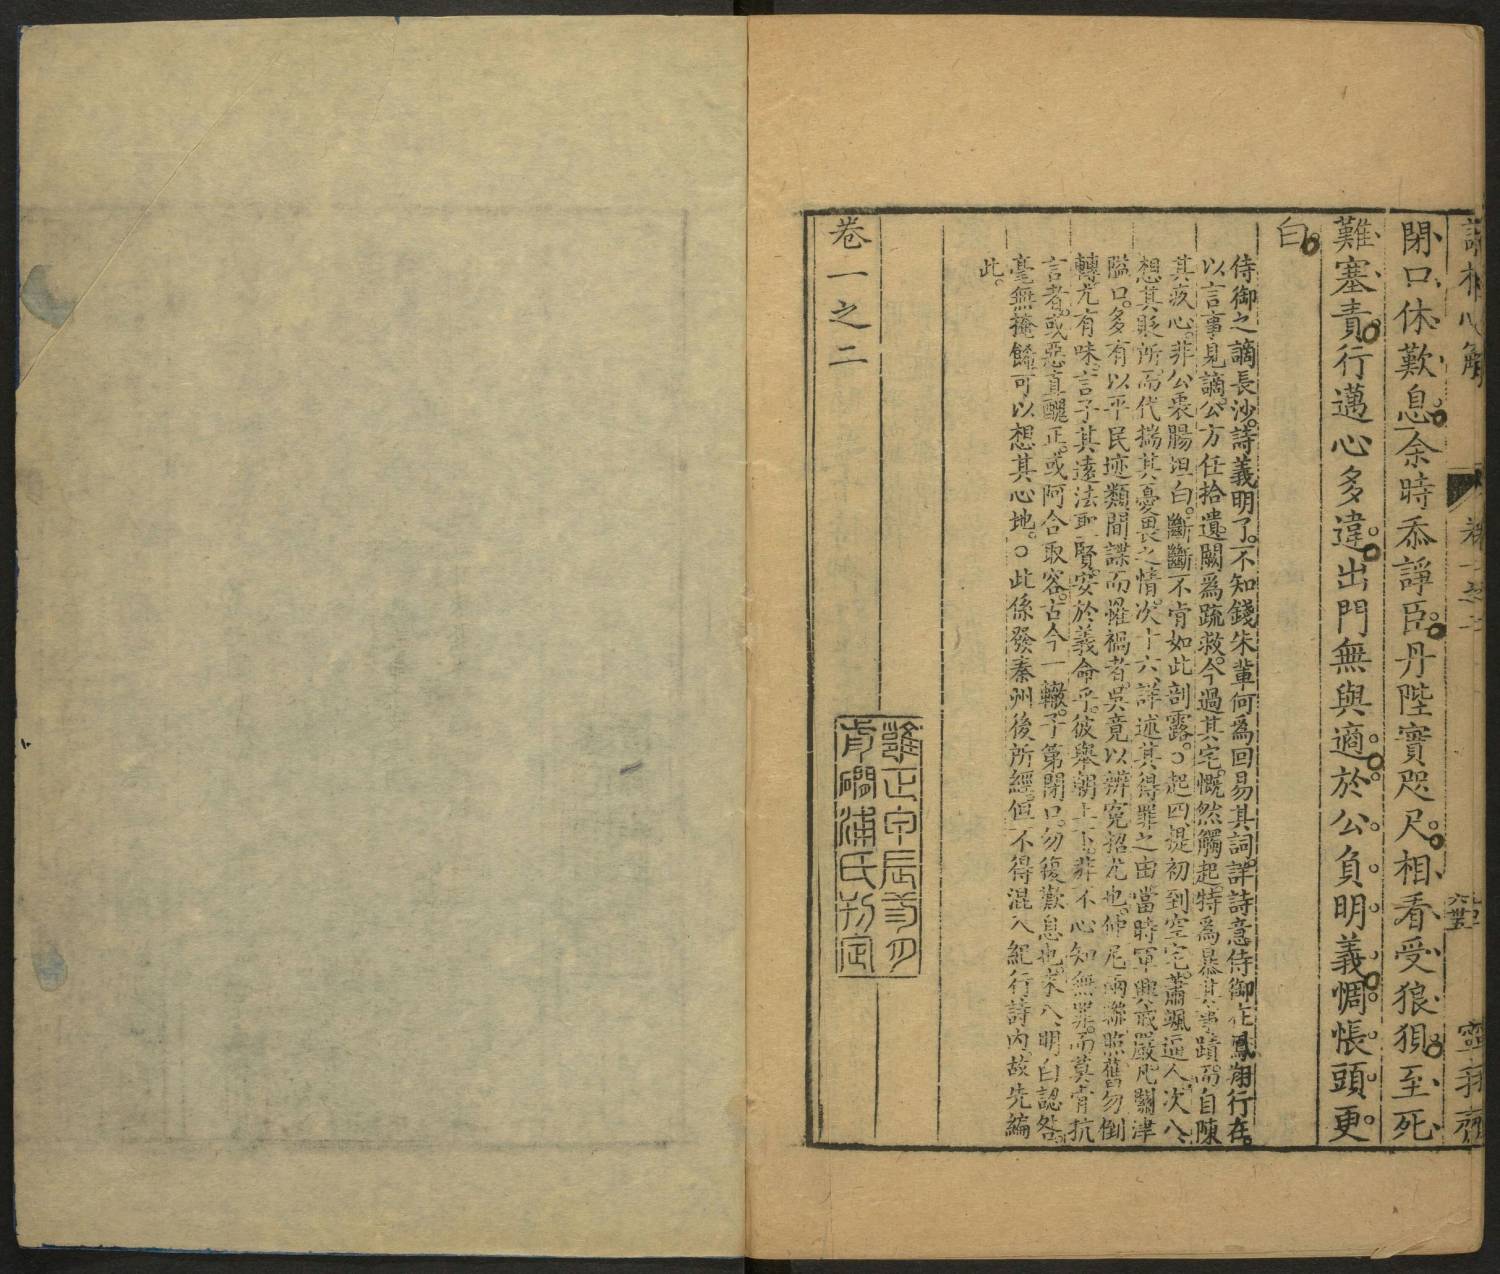 閉口休歎息余時忝諍臣丹陛實咫尺相看受狼狽至死
難塞責行邁心多違出門無與適於公負明義惆悵頭更
白
侍御之謫長沙詩義明了不知錢朱輩何爲回易其詞詳詩意侍御在鳳翔行在
以言事見謫公方任拾遺闕爲疏救今過其宅慨然觸起特爲暴其事蹟而自陳
其疚心非公衷腸坦白斷斷不肯如此剖露○起四提初到空宅蕭颯逼人次八
想其貶所而代揣其憂畏之情次十六詳述其得罪之由當時軍興嚴凡關津
隘口多有以平民迹類間諜而罹禍者吳竟以辨寃招尤也仲尼兩聯照舊勿倒
轉尤有味言子其遠法聖賢安於義命乎彼舉朝上下非不心知無罪而莫肯抗
言者或惡直醜正或阿合取容古今一轍子第閉口勿復歎息也末八明白認咎
毫無掩餙可以想其心地○此係發秦州後所經但不得混入紀行詩內故先編
此
卷一之二
雍正甲辰
前磵浦氏刊定